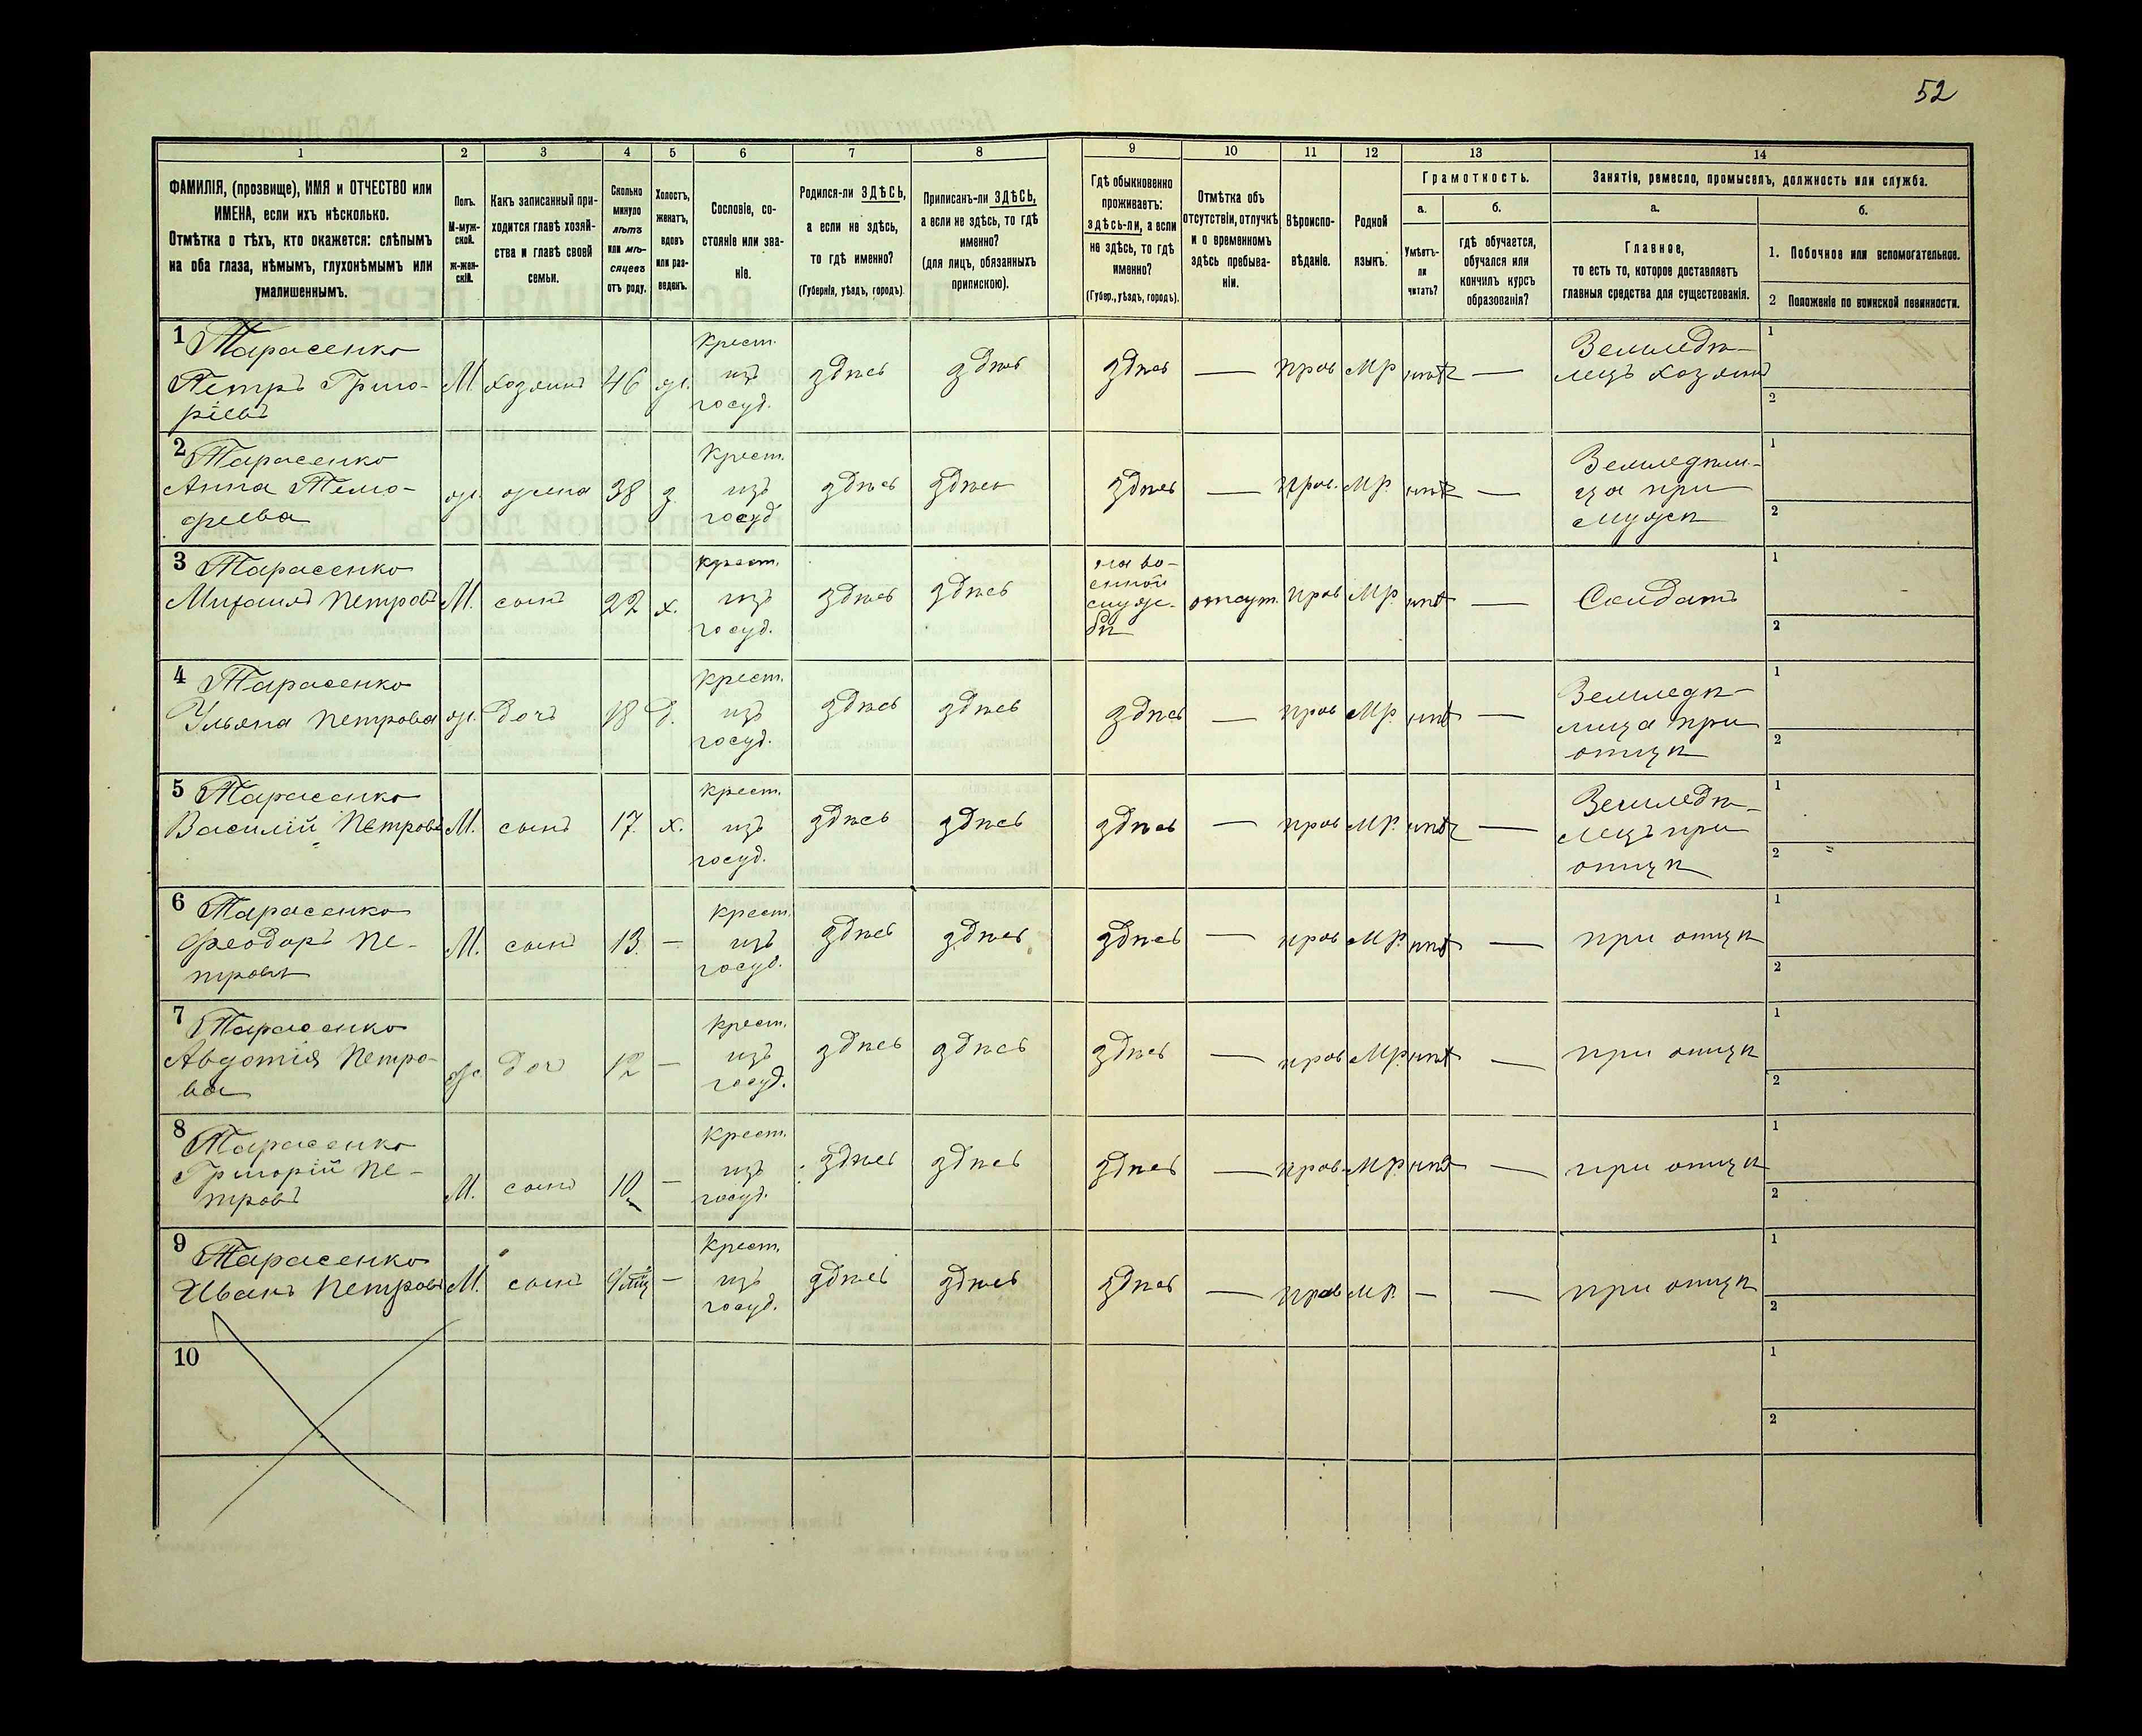 52
1 2 3 4 5 6 7 8 9 10 11 12 13 14
ФАМИЛІЯ, (прозвище), ИМЯ и ОТЧЕСТВО или
ИМЕНА, если ихъ нѣсколько.
Отмѣтка о тѣхъ, кто окажется: слѣпымъ
на оба глаза, нѣмымъ, глухонѣмымъ или
умалишеннымъ.
Полъ.
М-муж-
ской.
ж-жен-
скій.
Какъ записанный при-
ходится главѣ хозяй-
ства и главѣ своей
семьи.
Сколько
минуло
лѣтъ
или мѣ-
сяцевъ
отъ роду.
Холостъ,
женатъ,
вдовъ
или раз-
веденъ.
Сословіе, со-
стояніе или зва-
ніе.
Родился-ли ЗДѢСЬ,
а если не здѣсь,
то гдѣ именно?
(Губернія, уѣздъ, городъ).
Приписанъ-ли ЗДѢСЬ,
а если не здѣсь, то гдѣ
именно?
(для лицъ, обязанныхъ
припискою).
Гдѣ обыкновенно
проживаетъ:
здѣсь-ли, а если
не здѣсь, то гдѣ
именно?
(Губер., уѣздъ, городъ).
Отмѣтка объ
отсутствіи, отлучкѣ
и о временномъ
здѣсь пребыва-
ніи.
Вѣроиспо-
вѣданіе.
Родной
языкъ.
Грамотность.
а.
Умѣетъ-
ли
читать?
б.
гдѣ обучается,
обучался или
кончилъ курсъ
образованія?
Занятіе, ремесло, промыселъ, должность или служба.
а.
Главное,
то есть то, которое доставляетъ
главныя средства для существованія.
б.
1. Побочное или вспомогательное.
2 Положеніе по воинской повинности.
1 Тарасенко
Петръ Григо-
ріевъ
М. хозяинъ 46 ж.
крест.
изъ
госуд.
здѣсь здѣсь здѣсь — прав МР. нѣтъ —
Земледѣ-
лецъ хозяинъ
1
2
2 Тарасенко
Анна Тимо-
феева
ж. жена 38 з.
Крест.
изъ
госуд
здѣсь здѣсь здѣсь — прав. МР. нѣтъ —
Земледѣли-
ца при
мужѣ
1
2
3 Тарасенко
Михаилъ Петровъ
М. сынъ 22 х.
крест.
изъ
госуд.
здѣсь здѣсь
на во-
енной
служ-
бѣ
отсут. прав МР. нѣт — Солдатъ
1
2
4 Тарасенко
Ульяна Петрова
ж. дочь 18 д.
крест.
изъ
госуд.
здѣсь здѣсь здѣсь — прав МР. нѣт —
Земледѣ-
лица при
отцѣ
1
2
5 Тарасенко
Василій Петровъ
М. сынъ 17. х.
крест.
изъ
госуд.
здѣсь здѣсь здѣсь — прав МР. нѣтъ —
Земледѣ-
лецъ при
отцѣ
1
2
6 Тарасенко
Феодоръ Пе-
тровъ
М. сынъ 13. —
крест.
изъ
госуд.
здѣсь здѣсь здѣсь — прав МР. нѣт — при отцѣ
1
2
7 Тарасенко
Авдотія Петро-
ва
ж. доч 12 —
крест.
изъ
госуд.
здѣсь здѣсь здѣсь — прав МР. нѣт — при отцѣ
1
2
8 Тарасенко
Григорій Пе-
тровъ
М. сынъ 10 —
Крест.
изъ
госуд.
здѣсь здѣсь здѣсь — прав. МР. нѣт — при отцѣ
1
2
9 Тарасенко
Иванъ Петровъ
М. сынъ —
Крест.
изъ
госуд.
здѣсь здѣсь здѣсь — прав МР. — — при отцѣ
1
2
10
1
2